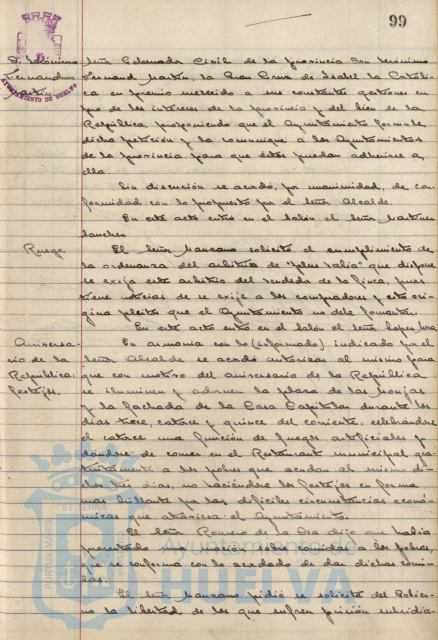 99
AYUNTAMIENTO DE HUELVA
D. Jerónimo
Fernand
Martín
señor Gobernador Civil de la provincia don Jerónimo
Fernand Martín, la Gran Cruz de Isabel la Católi-
ca en premio merecido a sus constantes gestiones en
pro de los intereses de la provincia y del bien de la
República, proponiendo que el Ayuntamiento formule
dicha petición y la comunique a los Ayuntamientos
de la provincia para que estos puedan adherirse a
ella.
Sin discusión se acordó, por unanimidad, de con-
formidad con lo propuesto por el señor Alcalde.
En este acto entró en el salón el señor Martínez
Sanchez
Ruego.
El señor Manzano solicitó el cumplimiento de
la ordenanza del arbitrio de "plus valía" que dispone
se exija este arbitrio del vendedor de la finca, pues
tiene noticias de se exije a los compradores y esto ori-
gina pleitos que el Ayuntamiento no debe fomentar.
En este acto entró en el salón el señor Lopez
Aniversa-
rio de la
República:
Festejos.
En armonía con lo (informado) indicado por el
señor Alcalde se acordó autorizar al mismo para
que con motivo del aniversario de la República
se iluminen y adornen la plaza de las Monjas
y la fachada de la Casa Capitular durante los
días trece, catorce y quince del corriente, celebrándose
el catorce una función de fuegos artificiales y
dándose de comer en el Restaurant municipal gra-
tuitamente a los pobres que acudan al mismo di-
chos tres días, no haciéndose los festejos en forma
mas brillante por las difíciles circunstancias econó-
micas que atraviesa el Ayuntamiento.
El señor Romero de la Osa dijo que había
presentado una moción sobre comidas a los pobres,
que se conforma con lo acordado de dar dichas comi-
das.
El señor Manzano pidió se solicite del Gobier-
no la libertad de los que sufren prisión subsidia-
PORTUS MARIS
ET TERRÆ
Ayuntamiento de
HUELVA